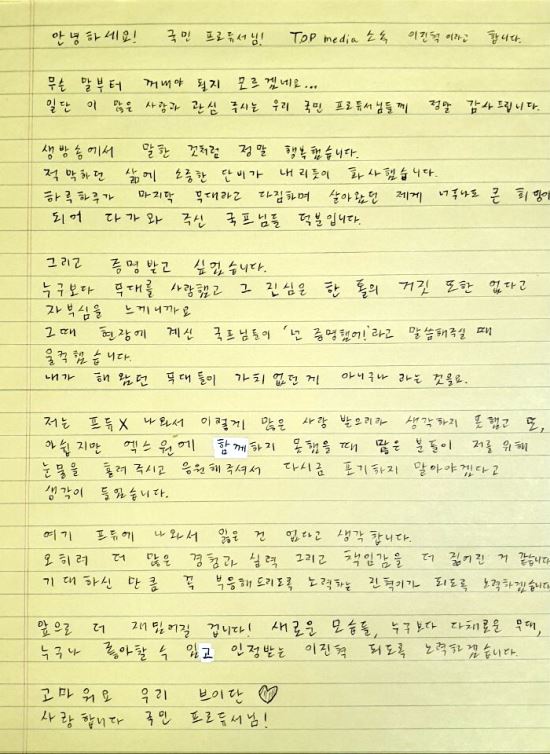 안녕하세요! 국민 프로듀서님! TOP media 소속 이진혁이라고 합니다.
무슨 말부터 꺼내야 될지 모르겠네요...
일단 이 많은 사랑과 관심 주시는 우리 국민 프로듀서님들께 정말 감사드립니다.
생방송에서 말한 것처럼 정말 행복했습니다.
적막하던 삶에 소중한 단비가 내리듯이 화사했습니다.
하루하루가 마지막 무대라고 다짐하며 살아왔던 제게 너무나도 큰 희망이
되어 다가와 주신 국프님들 덕분입니다.
그리고 증명받고 싶었습니다.
누구보다 무대를 사랑했고 그 진심은 한 톨의 거짓 또한 없다고
자부심을 느끼니까요
그때 현장에 계신 국프님들이 '넌 증명했어!'라고 말씀해주실 때
울컥했습니다.
내가 해 왔던 무대들이 가치 없던 게 아니구나 라는 것을요.
저는 프듀X 나와서 이렇게 많은 사랑 받으리라 생각하지 못했고 또,
아쉽지만 엑스원에 함께하지 못했을 때 많은 분들이 저를 위해
눈물을 흘려 주시고 응원해주셔서 다시금 포기하지 말아야겠다고
생각이 들었습니다.
여기 프듀에 나와서 잃은 건 없다고 생각합니다.
오히려 더 많은 경험과 실력 그리고 책임감을 더 짊어진 거 같습니다
기대하신 만큼 꼭 부응해드리도록 노력하는 진혁이가 되도록 노력하겠습니다
앞으로 더 재밌어질 겁니다! 새로운 모습들, 누구보다 다채로운 무대,
누구나 좋아할 수 있고 인정받는 이진혁 되도록 노력하겠습니다.
고마워요 우리 브이단 ♡
사랑합니다 국민 프로듀서님!